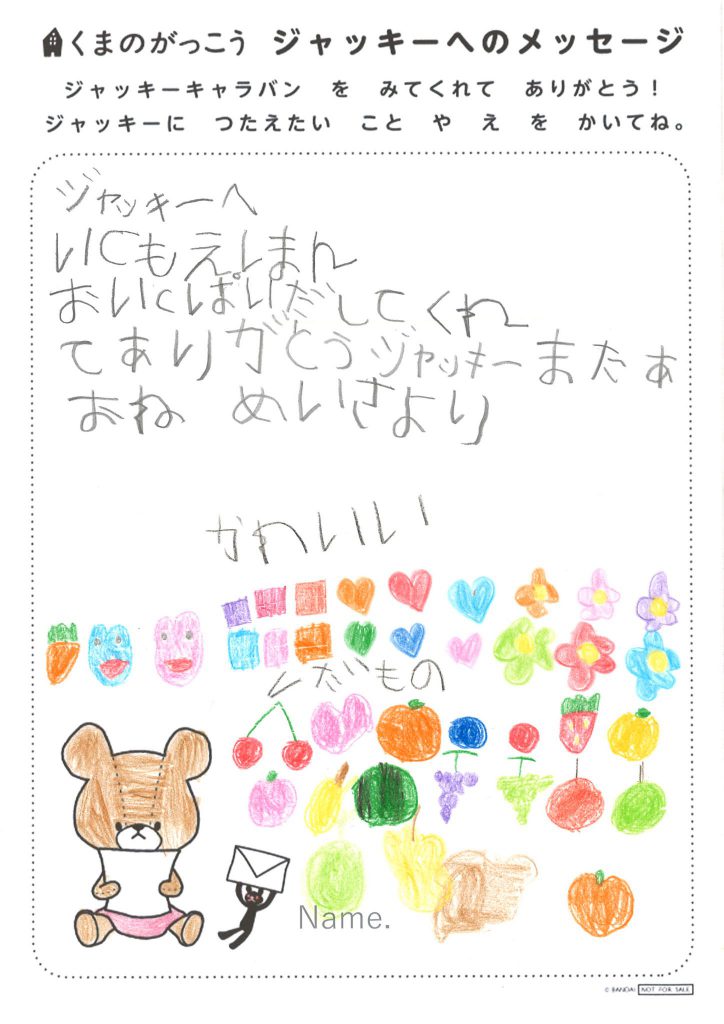 くまのがっこう ジャッキーへのメッセージ
ジャッキーキャラバン を みてくれて ありがとう!
ジャッキーに つたえたい こと や え を かいてね。
ジャッキーへ
いくもえ。しまん
おいくぱいだしてくれ
てありがとうジャッキーまたあ
おね めいさより
かわいい
くだもの
Name.
© BANDAI NOT FOR SALE